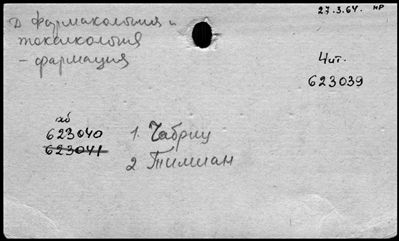 27.3.64. нр
Д Фармакология и
токсикология
- фармация
Чит.
623039
хб
623040
623041
1. Чабриц
2 Тилиан